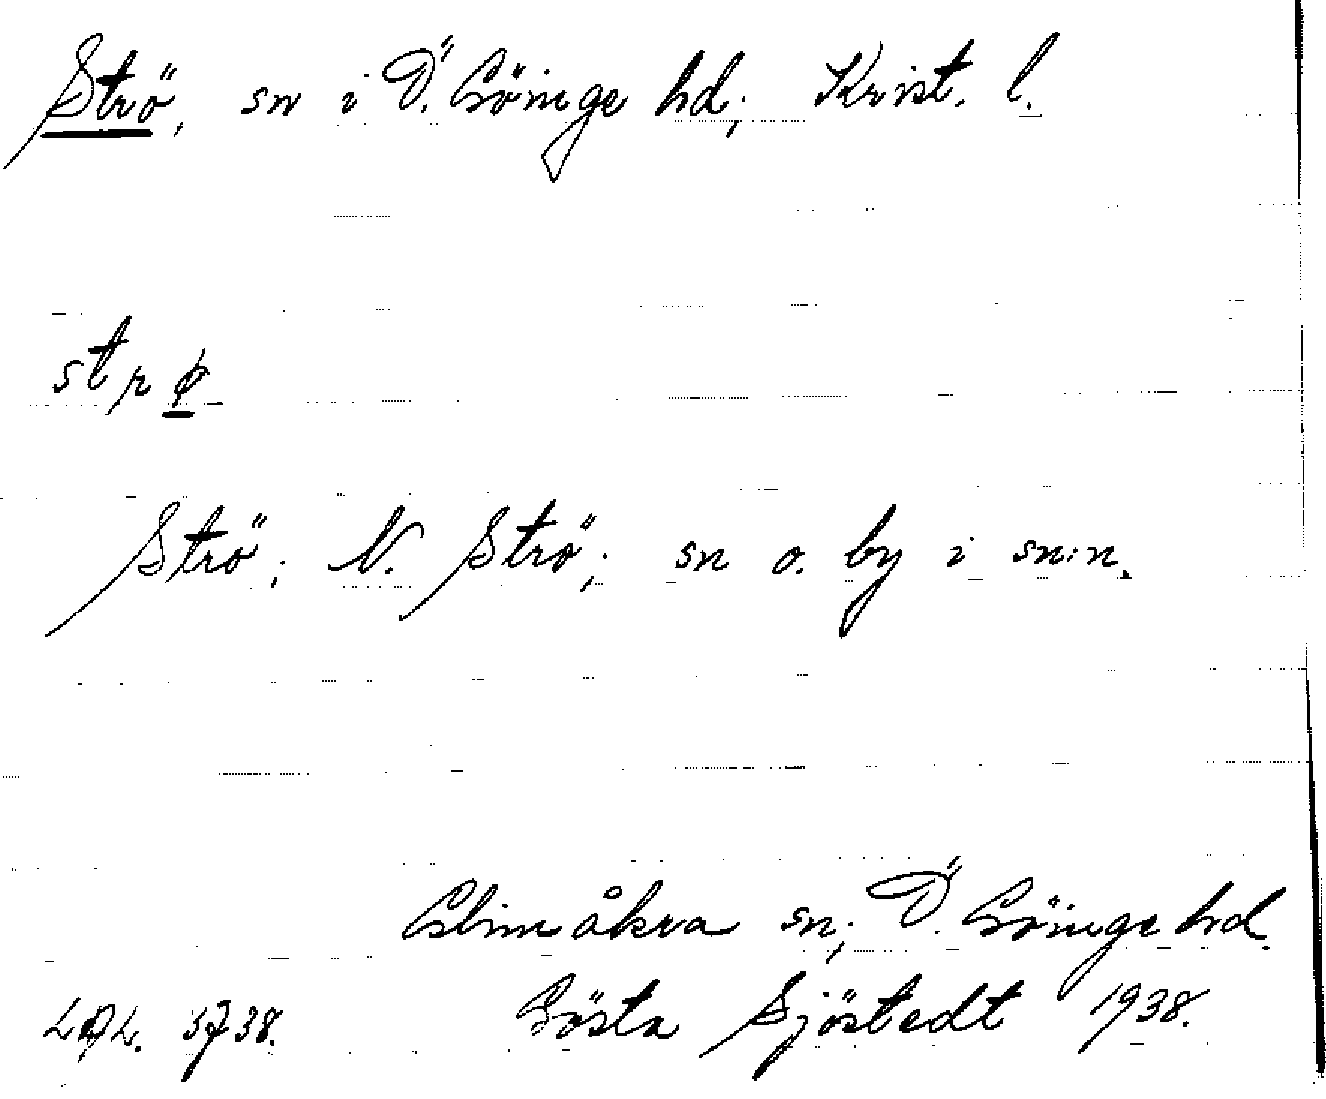 Strö, sn i Ö. Göinge hd, Krist. l.
strø
Strö; N. Strö; sn o. by i sn:n.
Glimåkra sn; Ö. Göinge hd.
LAL. 3738. Gösta Sjöstedt 1938.